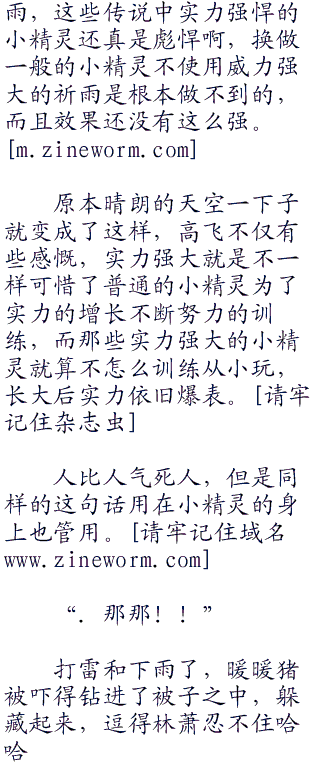 雨，这些传说中实力强悍的
小精灵还真是彪悍啊，换做
一般的小精灵不使用威力强
大的祈雨是根本做不到的，
而且效果还没有这么强。
[m.zineworm.com]
原本晴朗的天空一下子
就变成了这样，高飞不仅有
些感慨，实力强大就是不一
样可惜了普通的小精灵为了
实力的增长不断努力的训
练，而那些实力强大的小精
灵就算不怎么训练从小玩，
长大后实力依旧爆表。[请牢
记住杂志虫]
人比人气死人，但是同
样的这句话用在小精灵的身
上也管用。[请牢记住域名
www.zineworm.com]
“．那那！！”
打雷和下雨了，暖暖猪
被吓得钻进了被子之中，躲
藏起来，逗得林萧忍不住哈
哈